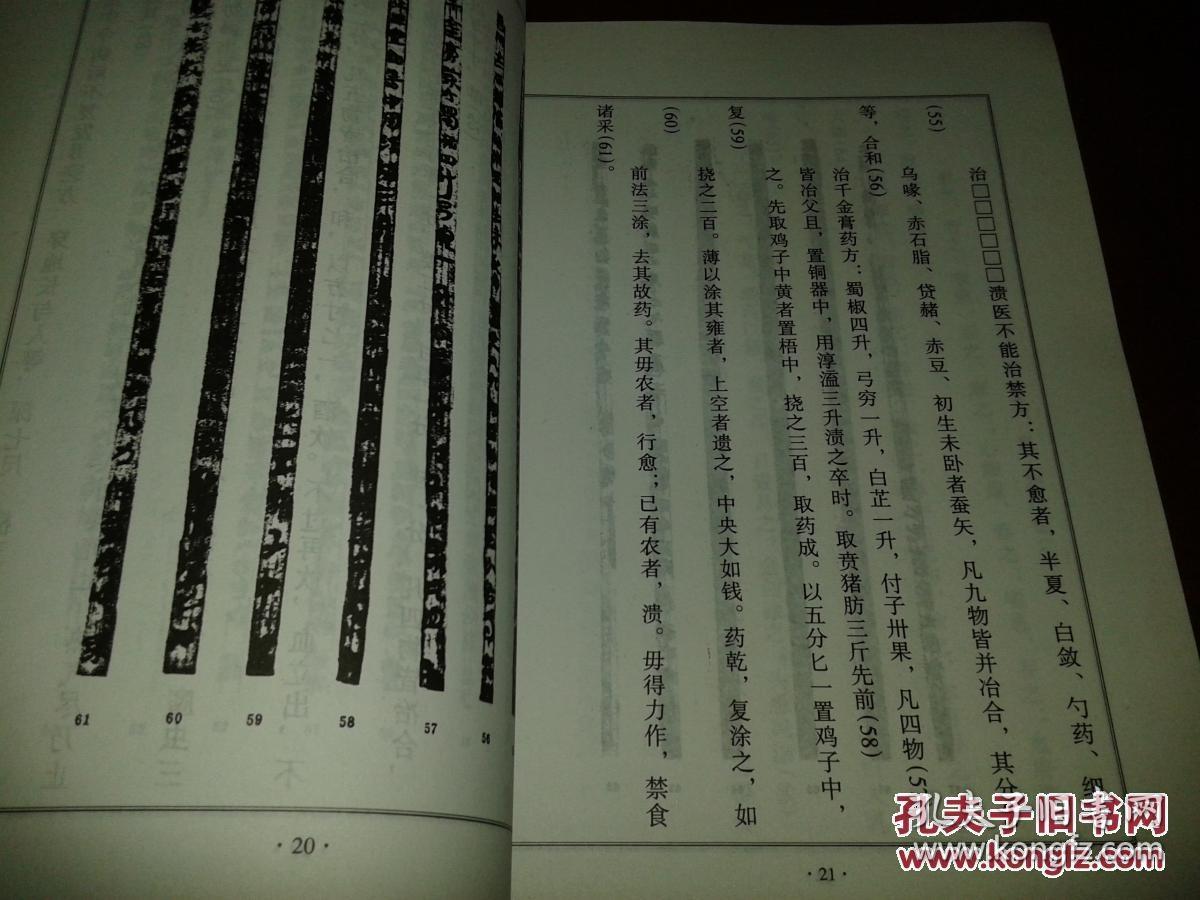 治□□□□□□溃医不能治禁方：其不愈者，半夏、白敛、勺药、细
(55)
乌喙、赤石脂、贷赭、赤豆、初生未卧者蚕矢，凡九物皆并冶合，其分
等，合和(56)
治千金膏药方：蜀椒四升，弓穷一升，白芷一升，付子卅果，凡四物(5
皆冶父且，置铜器中，用淳溘三升渍之卒时。取贲猪肪三斤先前(58)
之。先取鸡子中黄者置梧中，挠之三百，取药成。以五分匕一置鸡子中，
复(59)
挠之二百。薄以涂其雍者，上空者遗之，中央大如钱。药乾，复涂之，如
(60)
前法三涂，去其故药。其毋农者，行愈；已有农者，溃。毋得力作，禁食
诸采(61)。
·21·
56
57
58
59
60
61
·20·
孔夫子旧书网
www.kongfz.com